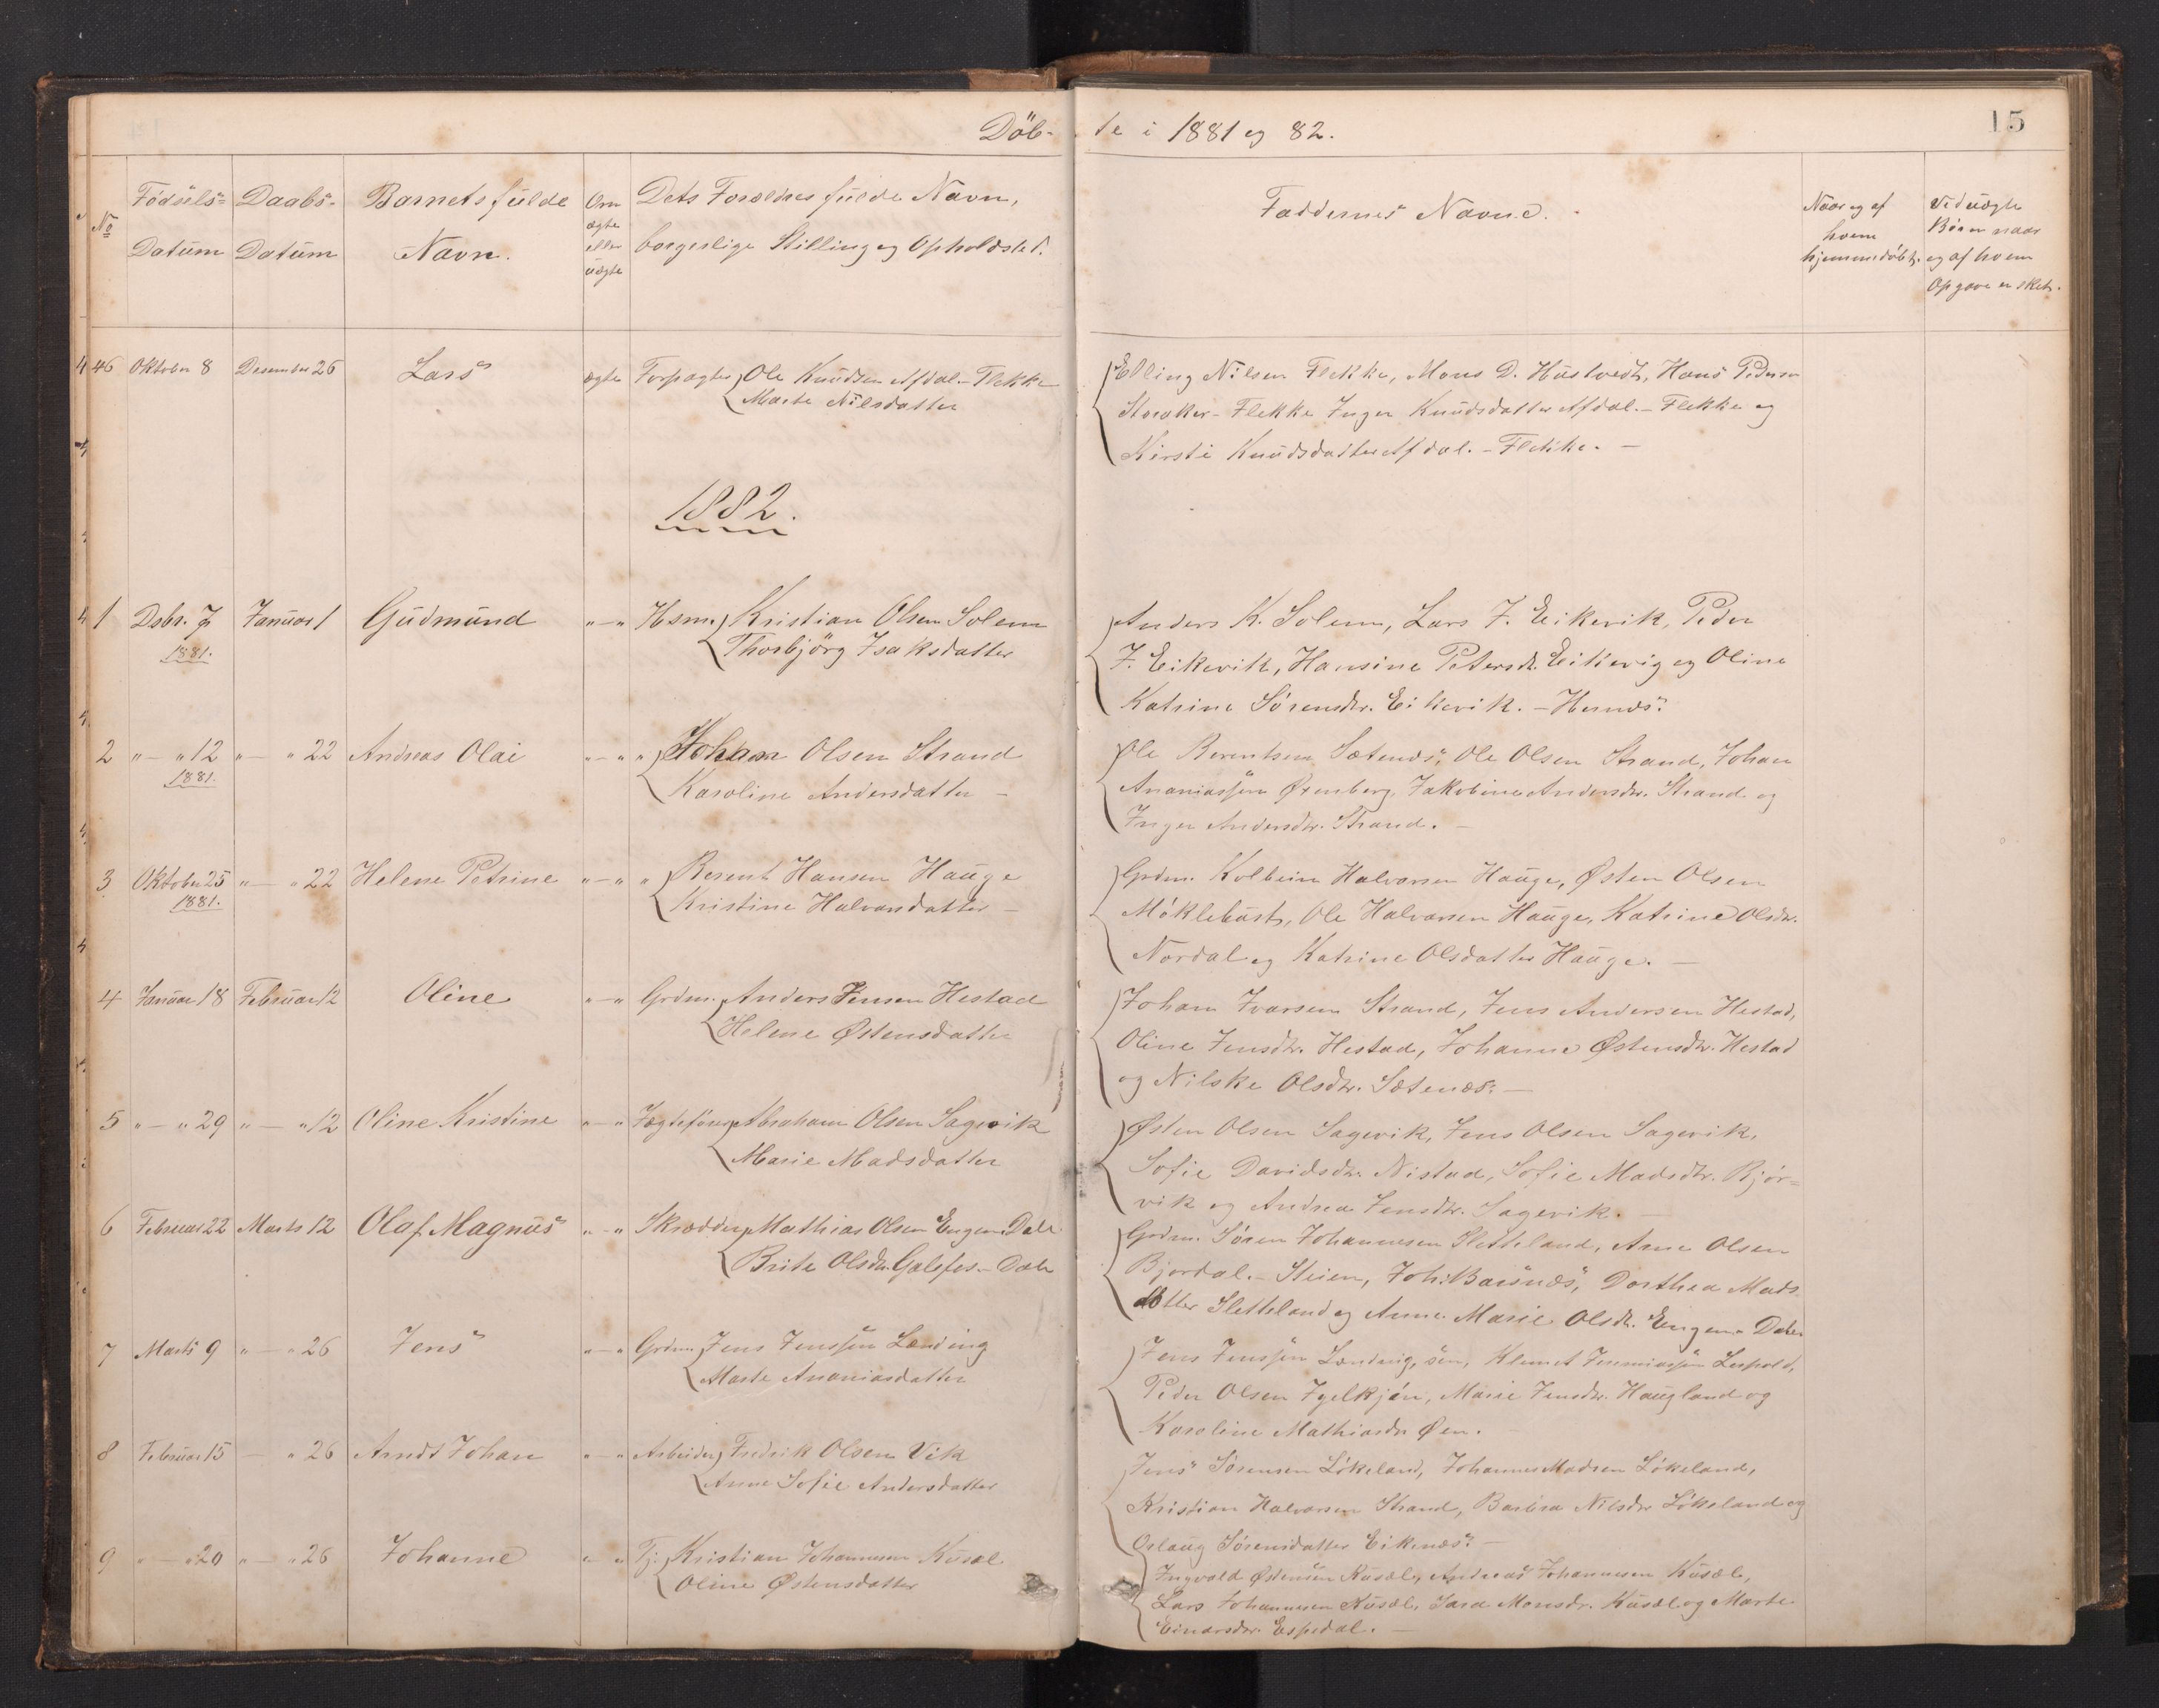 Döb- te i 1881 og 82.
15
No
Födsels- Datum
Daabs- Datum
Barnets fulde Navn.
Om ægte eller uægte
Dets Forældres fulde Navn,
borgerlige Stilling og Opholdsted.
Faddernes Navne.
Naar og af hvem hjemmedöbt.
Ved uægte Börn naar og af hvem Opgave er skeet.
46 Oktober 8 Desember 26 Lars ægte Forpagter Ole Knudsen Afdal - Flekke
Marte Nilsdatter
Elling Nilsen Flekke, Mons D. Hustvedt, Hans Pedersen
Storaker - Flekke Inger Knudsdatter Afdal. - Flekke og
Kirsti Knudsdatter Afdal. - Flekke. -
1882.
1 Dsbr. 7 Januar 1 Gudmund " - " Hsm. Kristian Olsen Solem
1881.
Thorbjörg Isaksdatter
Anders K. Solem, Lars J. Eikevik, Peder
J. Eikevik, Hansine Petersdt. Eikevig og Oline
Katrine Sörensdtr. Eikevik. - Hernes.
2 " - " 12 " - " 22 Andreas Olai " - " " Johan Olsen Strand
1881.
Karoline Andersdatter -
Ole Berentsen Sætenes, Ole Olsen Strand, Johan
Ananiassön Ørenberg, Jakobine Andersdtr. Strand og
Inger Andersdtr. Strand. -
3 Oktober 25 " - " 22 Helene Petrine " - " " Berent Hansen Hauge
1881.
Kristine Halvorsdatter -
Grdm. Kolbein Halvorsen Hauge, Østen Olsen
Möklebust, Ole Halvorsen Hauge, Katrine Olsdtr.
Nordal og Katrine Olsdatter Hauge. -
4 Januar 18 Februar 12 Oline " - " Grdm. Anders Jensen Hestad
Helene Østensdatter
Johan Ivarsen Strand, Jens Andersen Hestad,
Oline Jensdtr. Hestad, Johanne Østensdtr. Hestad
og Nilske Olsdtr. Sætenes. -
5 " - " 29 " - " 12 Oline Kristine " - " Jægtefører Abraham Olsen Sagevik
Marie Madsdatter
Østen Olsen Sagevik, Jens Olsen Sagevik,
Sofie Davidsdtr. Nistad, Sofie Madsdtr. Bjør-
vik og Andrea Jensdtr. Sagevik. -
6 Februar 22 Marts 12 Olaf Magnus " - " Skrædder Mathias Olsen Engen - Dale
Brite Olsdtr. - Dale
Grdm. Sören Johannesen Sletteland, Arne Olsen
Bjordal. - Steien, Joh. Barsnes, Dorthea Mads
datter Sletteland og Anne Marie Olsdt. Engen - Dale
7 Marts 9 " - " 26 Jens " - " Grdm. Jens Jenssön Lending
Marte Ananiasdatter
Jens Jenssön Lending, sen, Klemet Jeremiassön
Peder Olsen Igelkjön, Marie Jensdtr. Haugland og
Karoline Mathiasdtr Øen. -
8 Februar 15 - " 26 Arndt Johan " - " Arbeider Fredrik Olsen Vik
Anne Sofie Andersdatter
Jens Sörensen Lökeland, Johannes Madsen Lökeland,
Kristian Halvorsen Strand, Barbra Nilsdtr Lökeland og
Oslaug Sörensdatter Eikenes. -
9 " - " 20 " - " 26 Johanne " " Tj. Kristian Johannesen Kusæl
Oline Østensdatter
Ingvald Østensen Kusæl, Andreas Johannesen Kusæl,
Lars Johannesen Kusæl, Sara Monsdr. Kusæl og Marte
Einarsdtr. Espedal. -